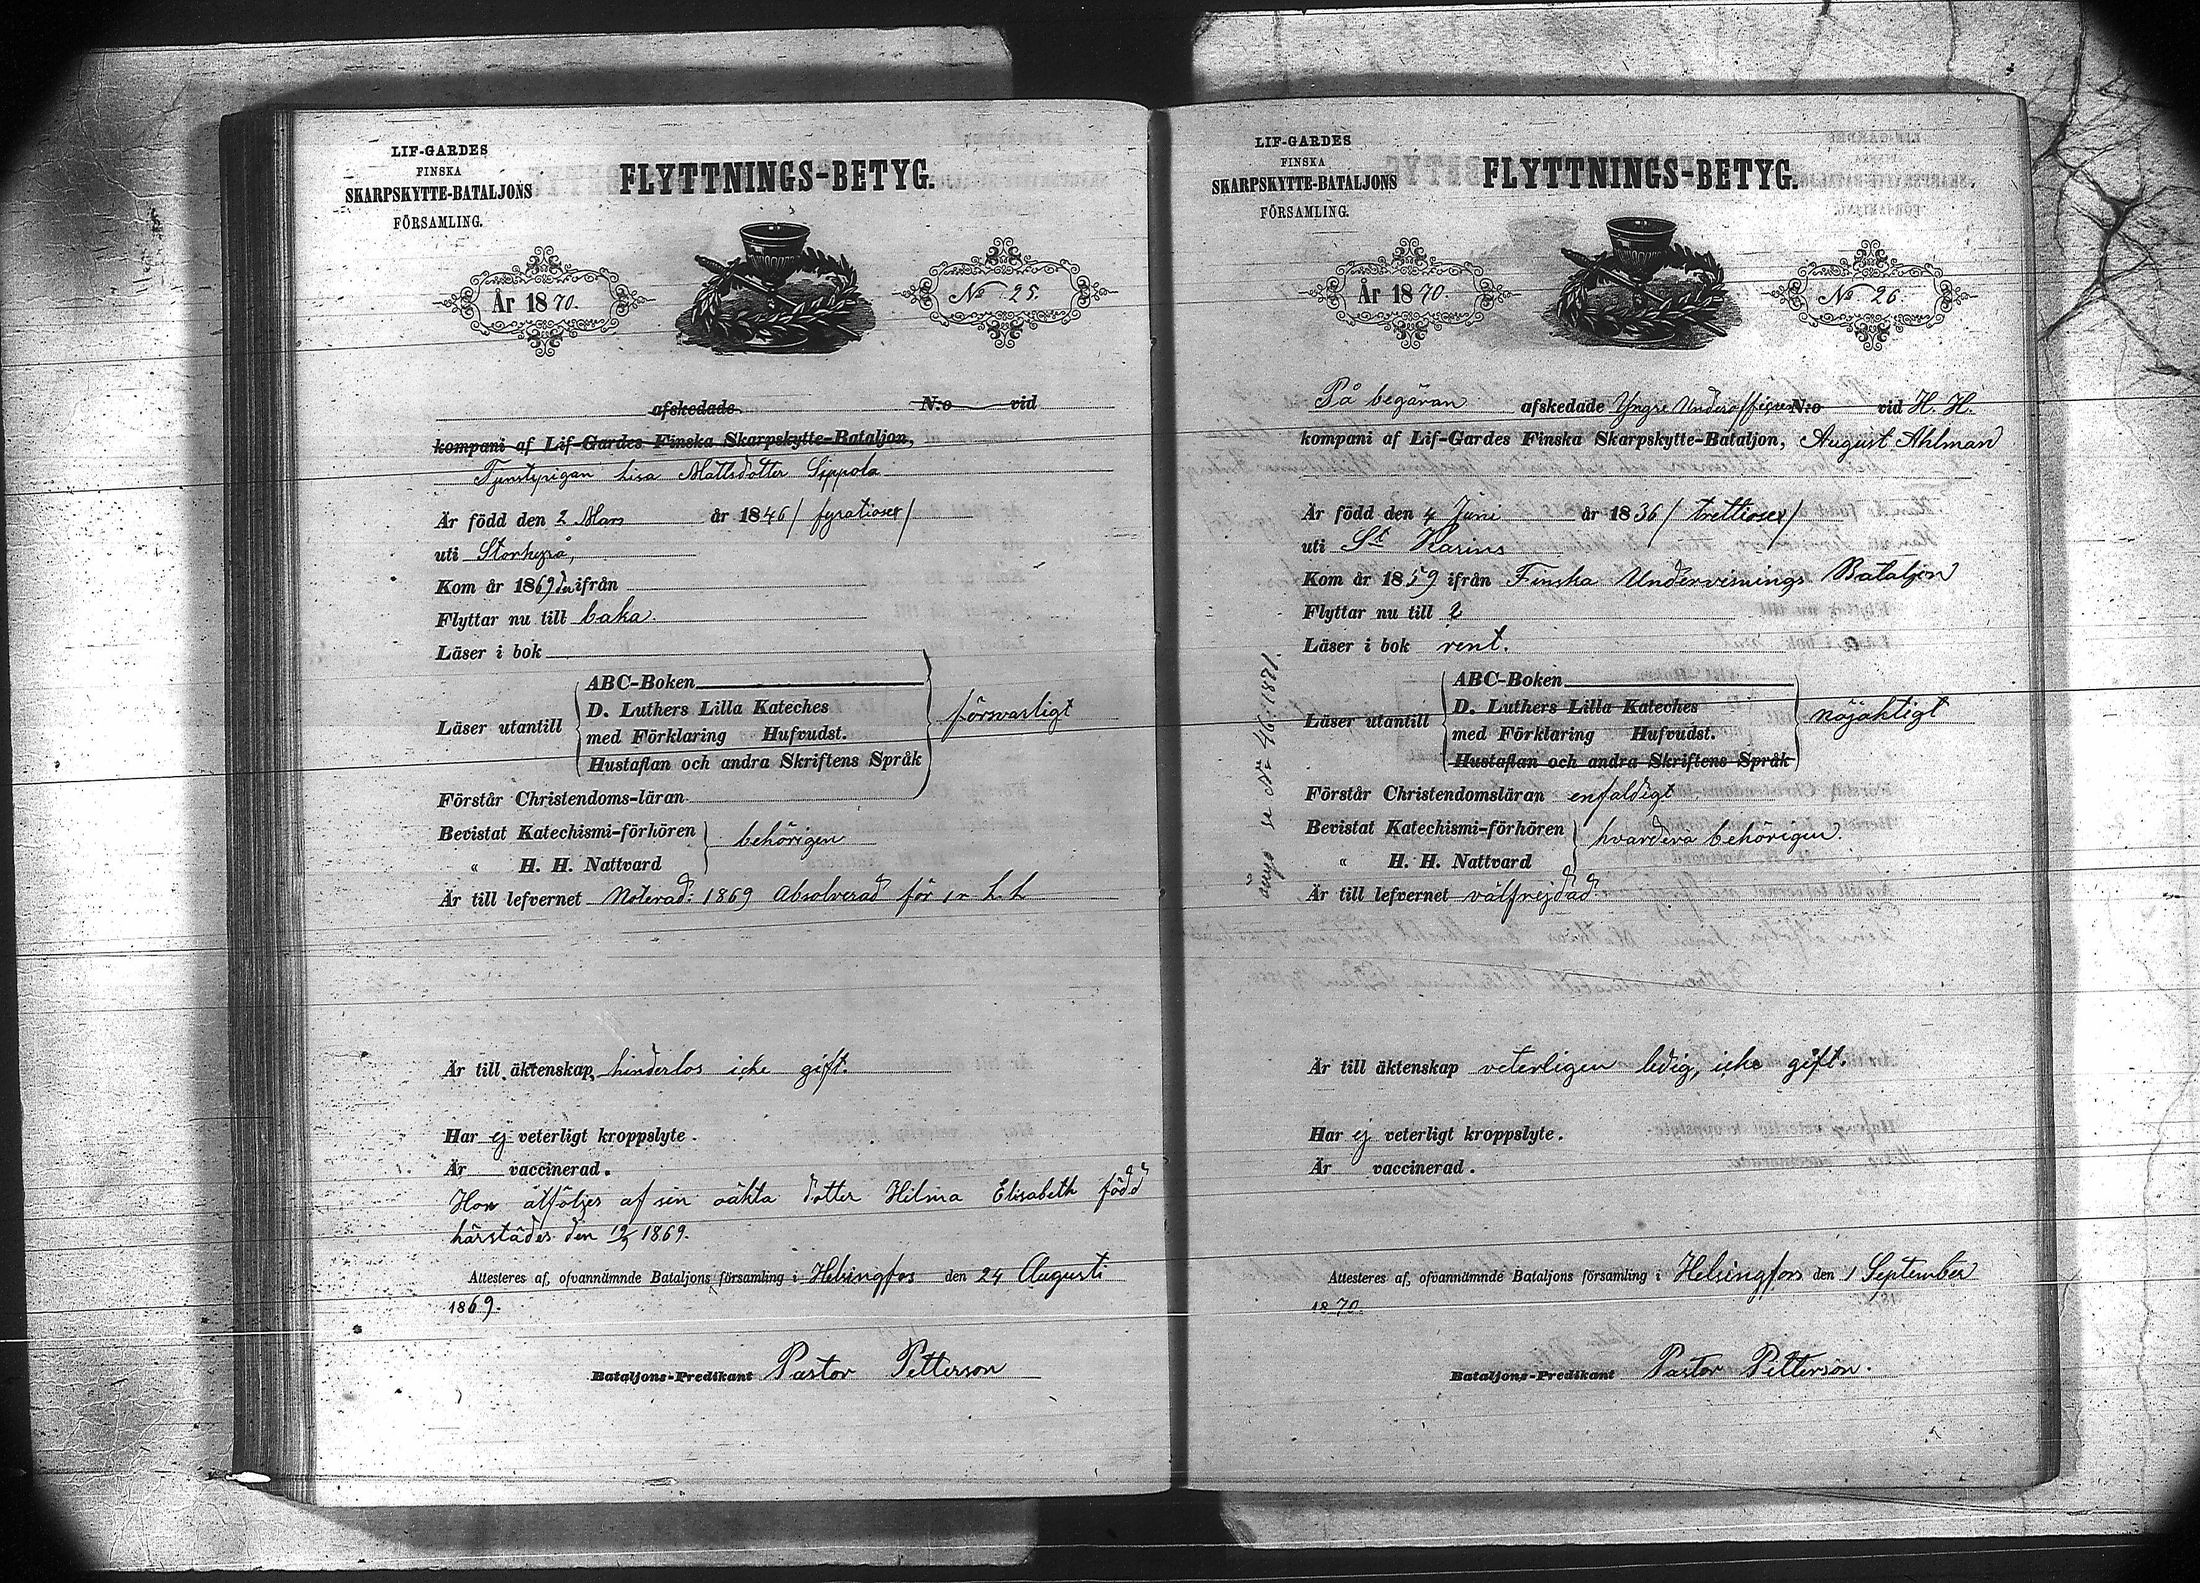 LIF-GARDES
FINSKA
SKARPSKYTTE-BATALJONS
FÖRSAMLING.
FLYTTNINGS-BETYG.
År 1870.
No 25.
afskedade N:o vid
kompani af Lif-Gardes Finska Skarpskytte-Bataljon,
Tjenstpigan Lisa Mattsdotter Sippola
Är född den 2 Mars år 1846 / fyratiosex /
uti Storkyrå,
Kom år 1869 ifrån
Flyttar nu till baka.
Läser i bok
Läser utantill
ABC-Boken
D. Luthers Lilla Kateches
med Förklaring Hufvudst.
Hustaflan och andra Skriftens Språk
försvarligt
Förstår Christendoms-läran
Bevistat Katechismi-förhören
„ H. H. Nattvard
behörigen
Är till lefvernet Noterad: 1869 Absolverad för 1n L. L.
Är till äktenskap hinderlos icke gift.
Har ej veterligt kroppslyte.
Är vaccinerad.
Hon åtföljes af sin oäkta dotter Hilma Elisabeth född
härstädes den 1869.
Attesteres af, ofvannämnde Bataljons församling i Helsingfors den 24 Augusti
1869.
Bataljons-Predikant Pastor Petterson
LIF-GARDES
FINSKA
SKARPSKYTTE-BATALJONS
FÖRSAMLING.
FLYTTNINGS-BETYG.
År 1870.
No 26.
På begäran afskedade Yngre Underofficeren N:o vid H. H.
kompani af Lif-Gardes Finska Skarpskytte-Bataljon, August Ahlman
Är född den 4 Juni år 1836 / trettiosex /
uti St Karins
Kom år 1859 ifrån Finska Undervisnings Bataljon
Flyttar nu till
Läser i bok rent.
Läser utantill
ABC-Boken
D. Luthers Lilla Kateches
med Förklaring Hufvudst.
Hustaflan och andra Skriftens Språk
nöjaktigt
Förstår Christendomsläran enfaldigt
Bevistat Katechismi-förhören
„ H. H. Nattvard
hvardera behörigen.
Är till lefvernet välfrejdad.
se No 46. 1871.
Är till äktenskap veterligen ledig, icke gift.
Har ej veterligt kroppslyte.
Är vaccinerad.
Attesteres af, ofvannämnde Bataljons församling i Helsingfors den 1 September
1870.
Bataljons-Predikant Pastor Petterson.